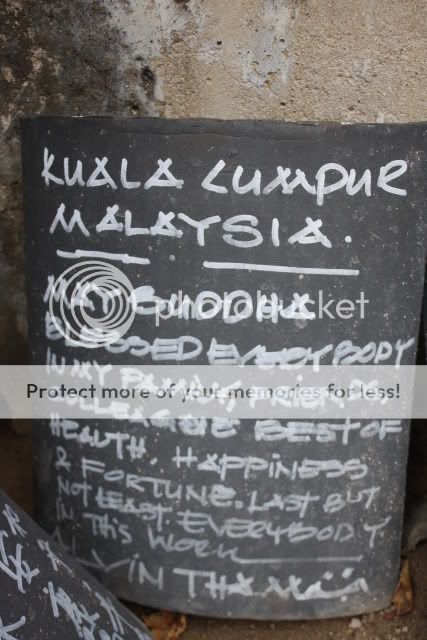 KUALA LUMPUR
MALAYSIA.
MAY BUDDHA
BLESSED EVERYBODY
IN MY FAMILY, FRIENDS,
COLLEAGUE BEST OF
HEALTH. HAPPINESS
& FORTUNE. LAST BUT
NOT LEAST. EVERYBODY
IN THIS WORK
ALVIN THAM
photobucket
Protect more of your memories for less!